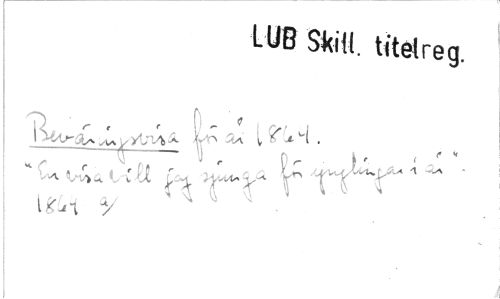 LUB Skill. titelreg.
Beväringsvisa för år 1864.
"En visa vill jag sjunga för ynglingar i år".
1864 a/